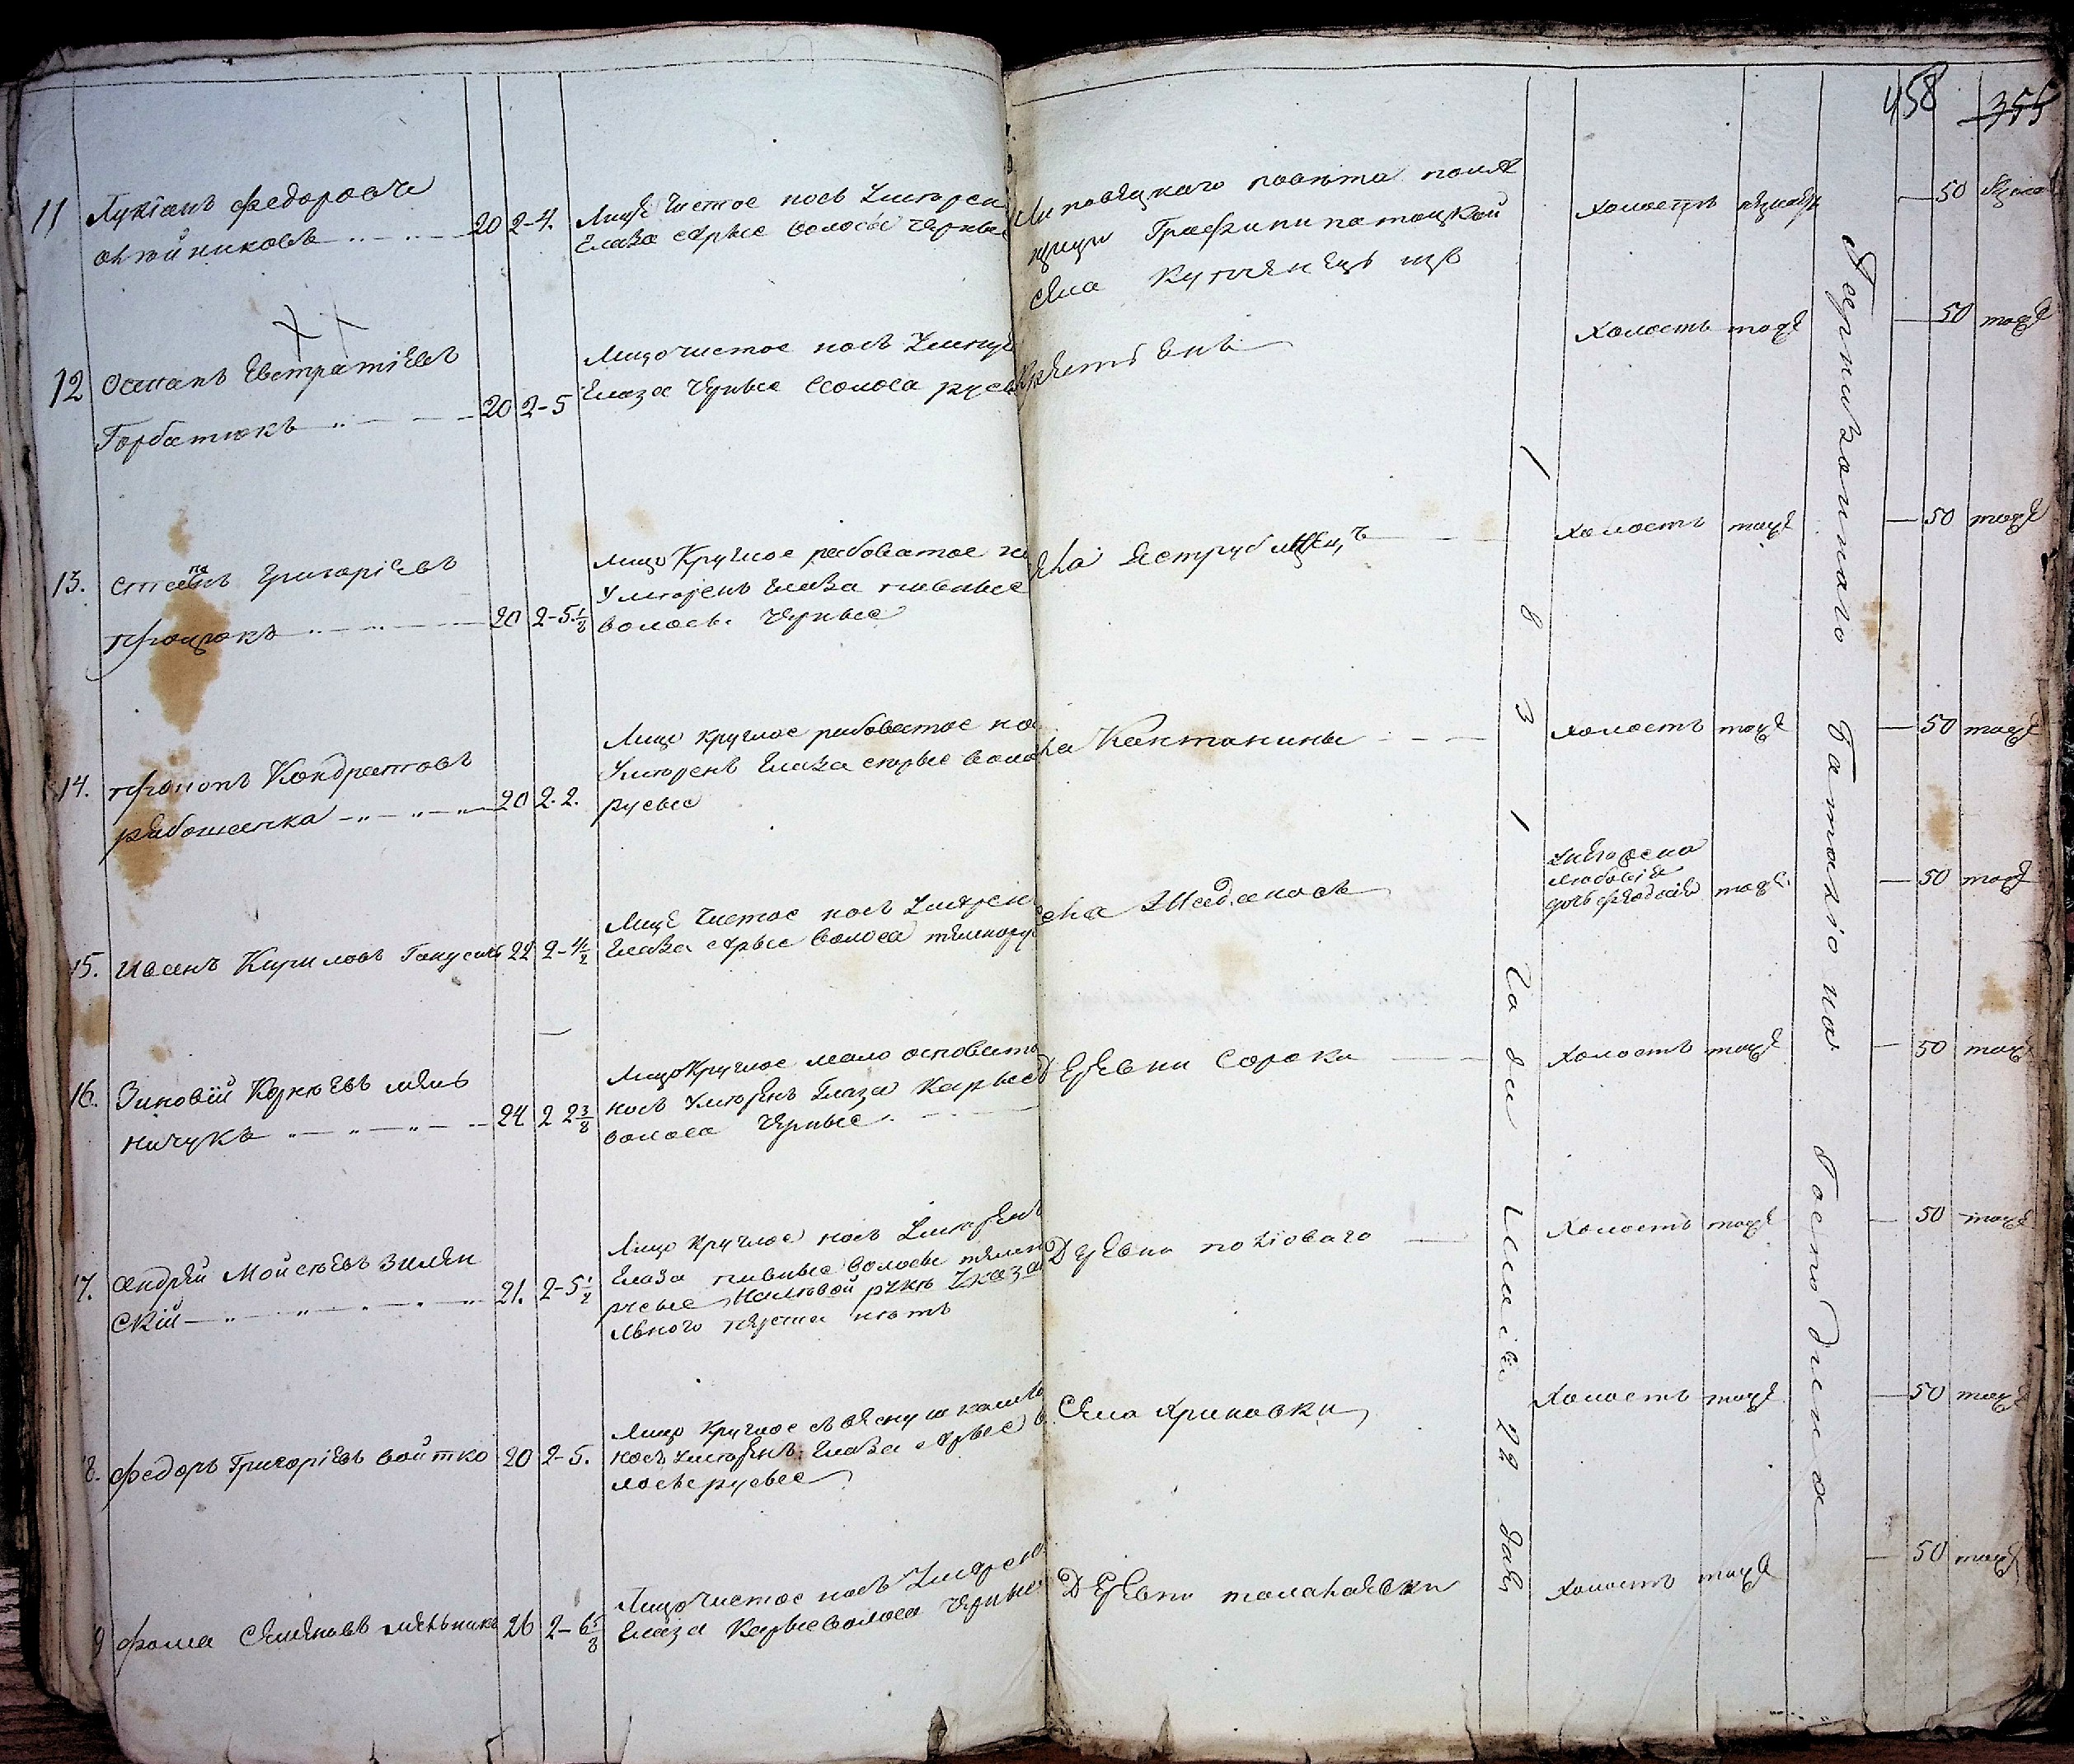 458 355
11 Лукіанъ Федоровъ
20 2-4. Лице чистое носъ умѣрен
глаза сѣрые волосы черные
Липовецкаго повѣта помѣ
щицы Графини потоцкой
села
холостъ
50
12 Остапъ Евстратіевъ
Горбатюкъ 20 2-5
Лицо чистое носъ умѣре
глаза черные волоса русы
крестьянъ
холостъ тоже
50 тоже
13. Степанъ Григоріевъ
20 2-5 1/8
лицо Круглое рабоватое но
умѣренъ глаза пивные
волосы черные
села Яструбинецъ
холостъ тоже
50 тоже
14. Прокопъ Кондратовъ
рабошапка 20 2.2.
Лице круглое рабоватое но
умѣренъ глаза сѣрые воло
русые
села Кантакины
холостъ тоже
50 тоже
15. Иванъ Кириловъ 22 2-4 1/2
Лице чистое носъ умѣрен
глаза сѣрые волоса темнору
села Жаданосъ
у него жена
дочь
тоже
50 тоже
16. Зиновій Корнѣевъ мель
ничукъ 24 2 2 3/8
Лицо Круглое мало осповато
носъ умѣренъ глаза карые
волоса черные
Деревни Сороки
холостъ тоже
50 тоже
17. Андрей Мойсѣевъ зилѣн
скій 21. 2-5 1/4
Лицо круглое носъ умѣренъ
глаза пивные волосы темно
русые На лѣвой рукѣ указа
льного перста нѣтъ
Деревни поповаго
холостъ тоже
50 тоже
18. Федоръ Григоріевъ войтко 20 2-5.
Лицо Круглое съ веснушками
носъ умѣренъ глаза сѣрые во
лосы русые
Села Криковки
холостъ тоже
50 тоже
9 Фома Семеновъ мельникъ 26 2-6 5/8
Лицо чистое носъ умѣрен
глаза Карые волоса черные
Деревни
холостъ тоже
50 тоже
1831 года 22 дня
Гарнизоннаго баталіона